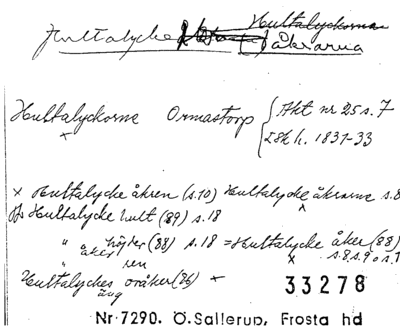 Hultalyckorna
Hultalycke åkrarna
Hultalyckorna Ormastorp { Akt nr 25 s. 7
Lsk h. 1831-33
x Hultalycke åkren (s.10) Hultalycke åkrarna s.8
Hultalycke hult (89) s.18
" höjder (88) s.18 = Hultalycke åker (88)
" åker ren x s.8 s.9 o s.1
Hultalyckes oråker (86)
äng
33278
Nr 7290. Ö.Sallerup, Frosta hd